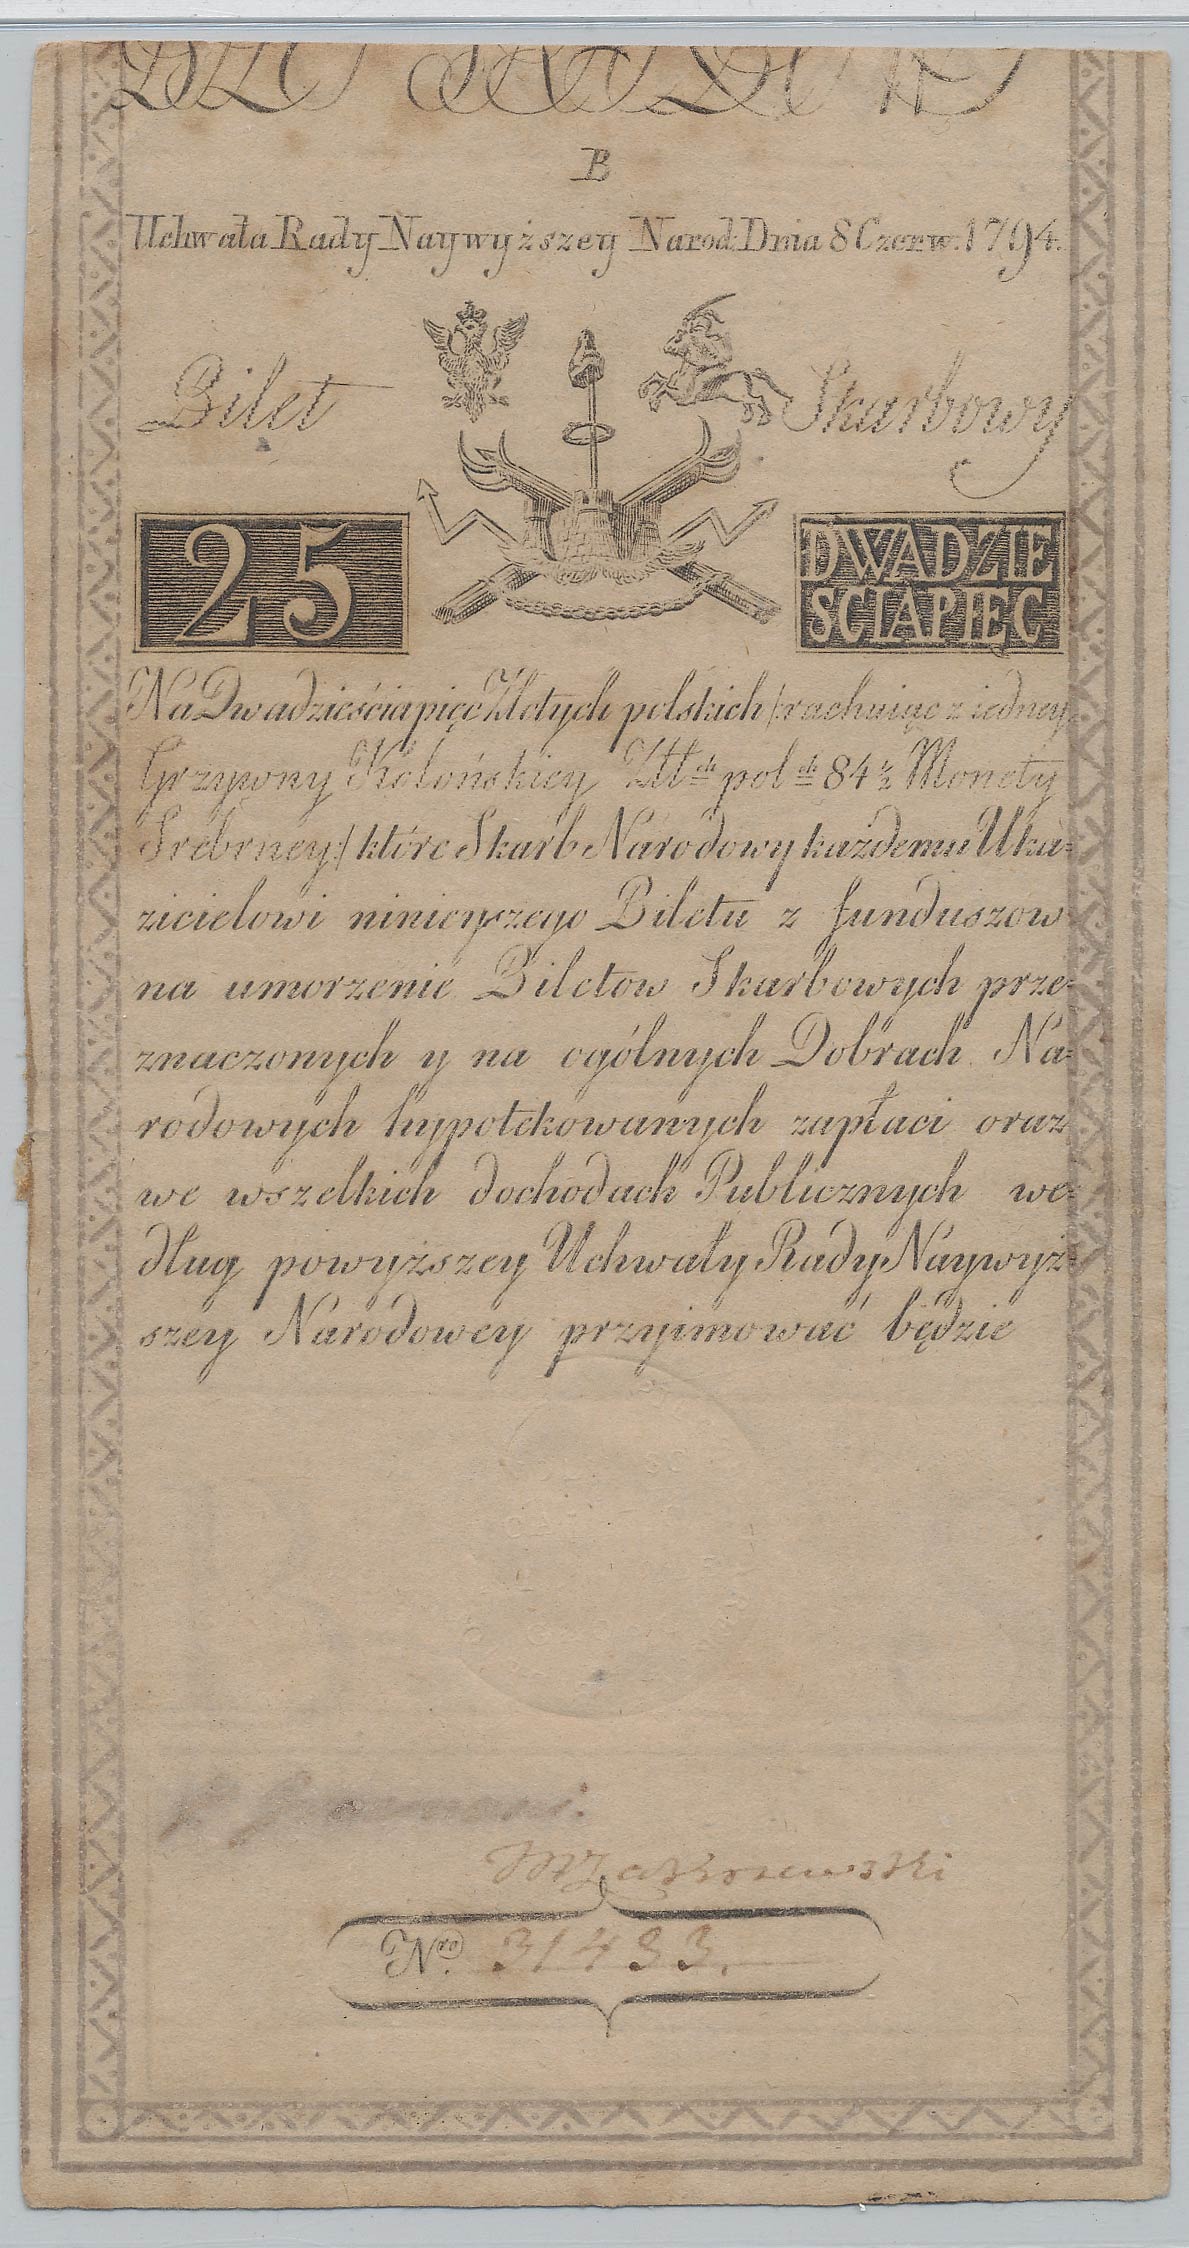 B
Uchwała Rady Naywyższey Narod: Dnia 8 Czerw: 1794.
Bilet Skarbowy
25
DWADZIE
SCIAPIĘC
Na Dwadzieściapięć Złotych polskich /:rachuiąc z iedney
Grzywny Kolońskiey Złł ch pol ch 84 ½ Monety
Srebrney:/ które Skarb Narodowy każdemu Uka=
zicielowi ninieyszego Biletu z funduszow
na umorzenie Biletow Skarbowych prze=
znaczonych y na ogólnych Dobrach Na=
rodowych hypotekowanych zapłaci oraz
we wszelkich dochodach Publicznych we=
dług powyższey Uchwały Rady Naywyż=
szey Narodowey przyimować będzie
MZakrzewski
Nro. 31433.